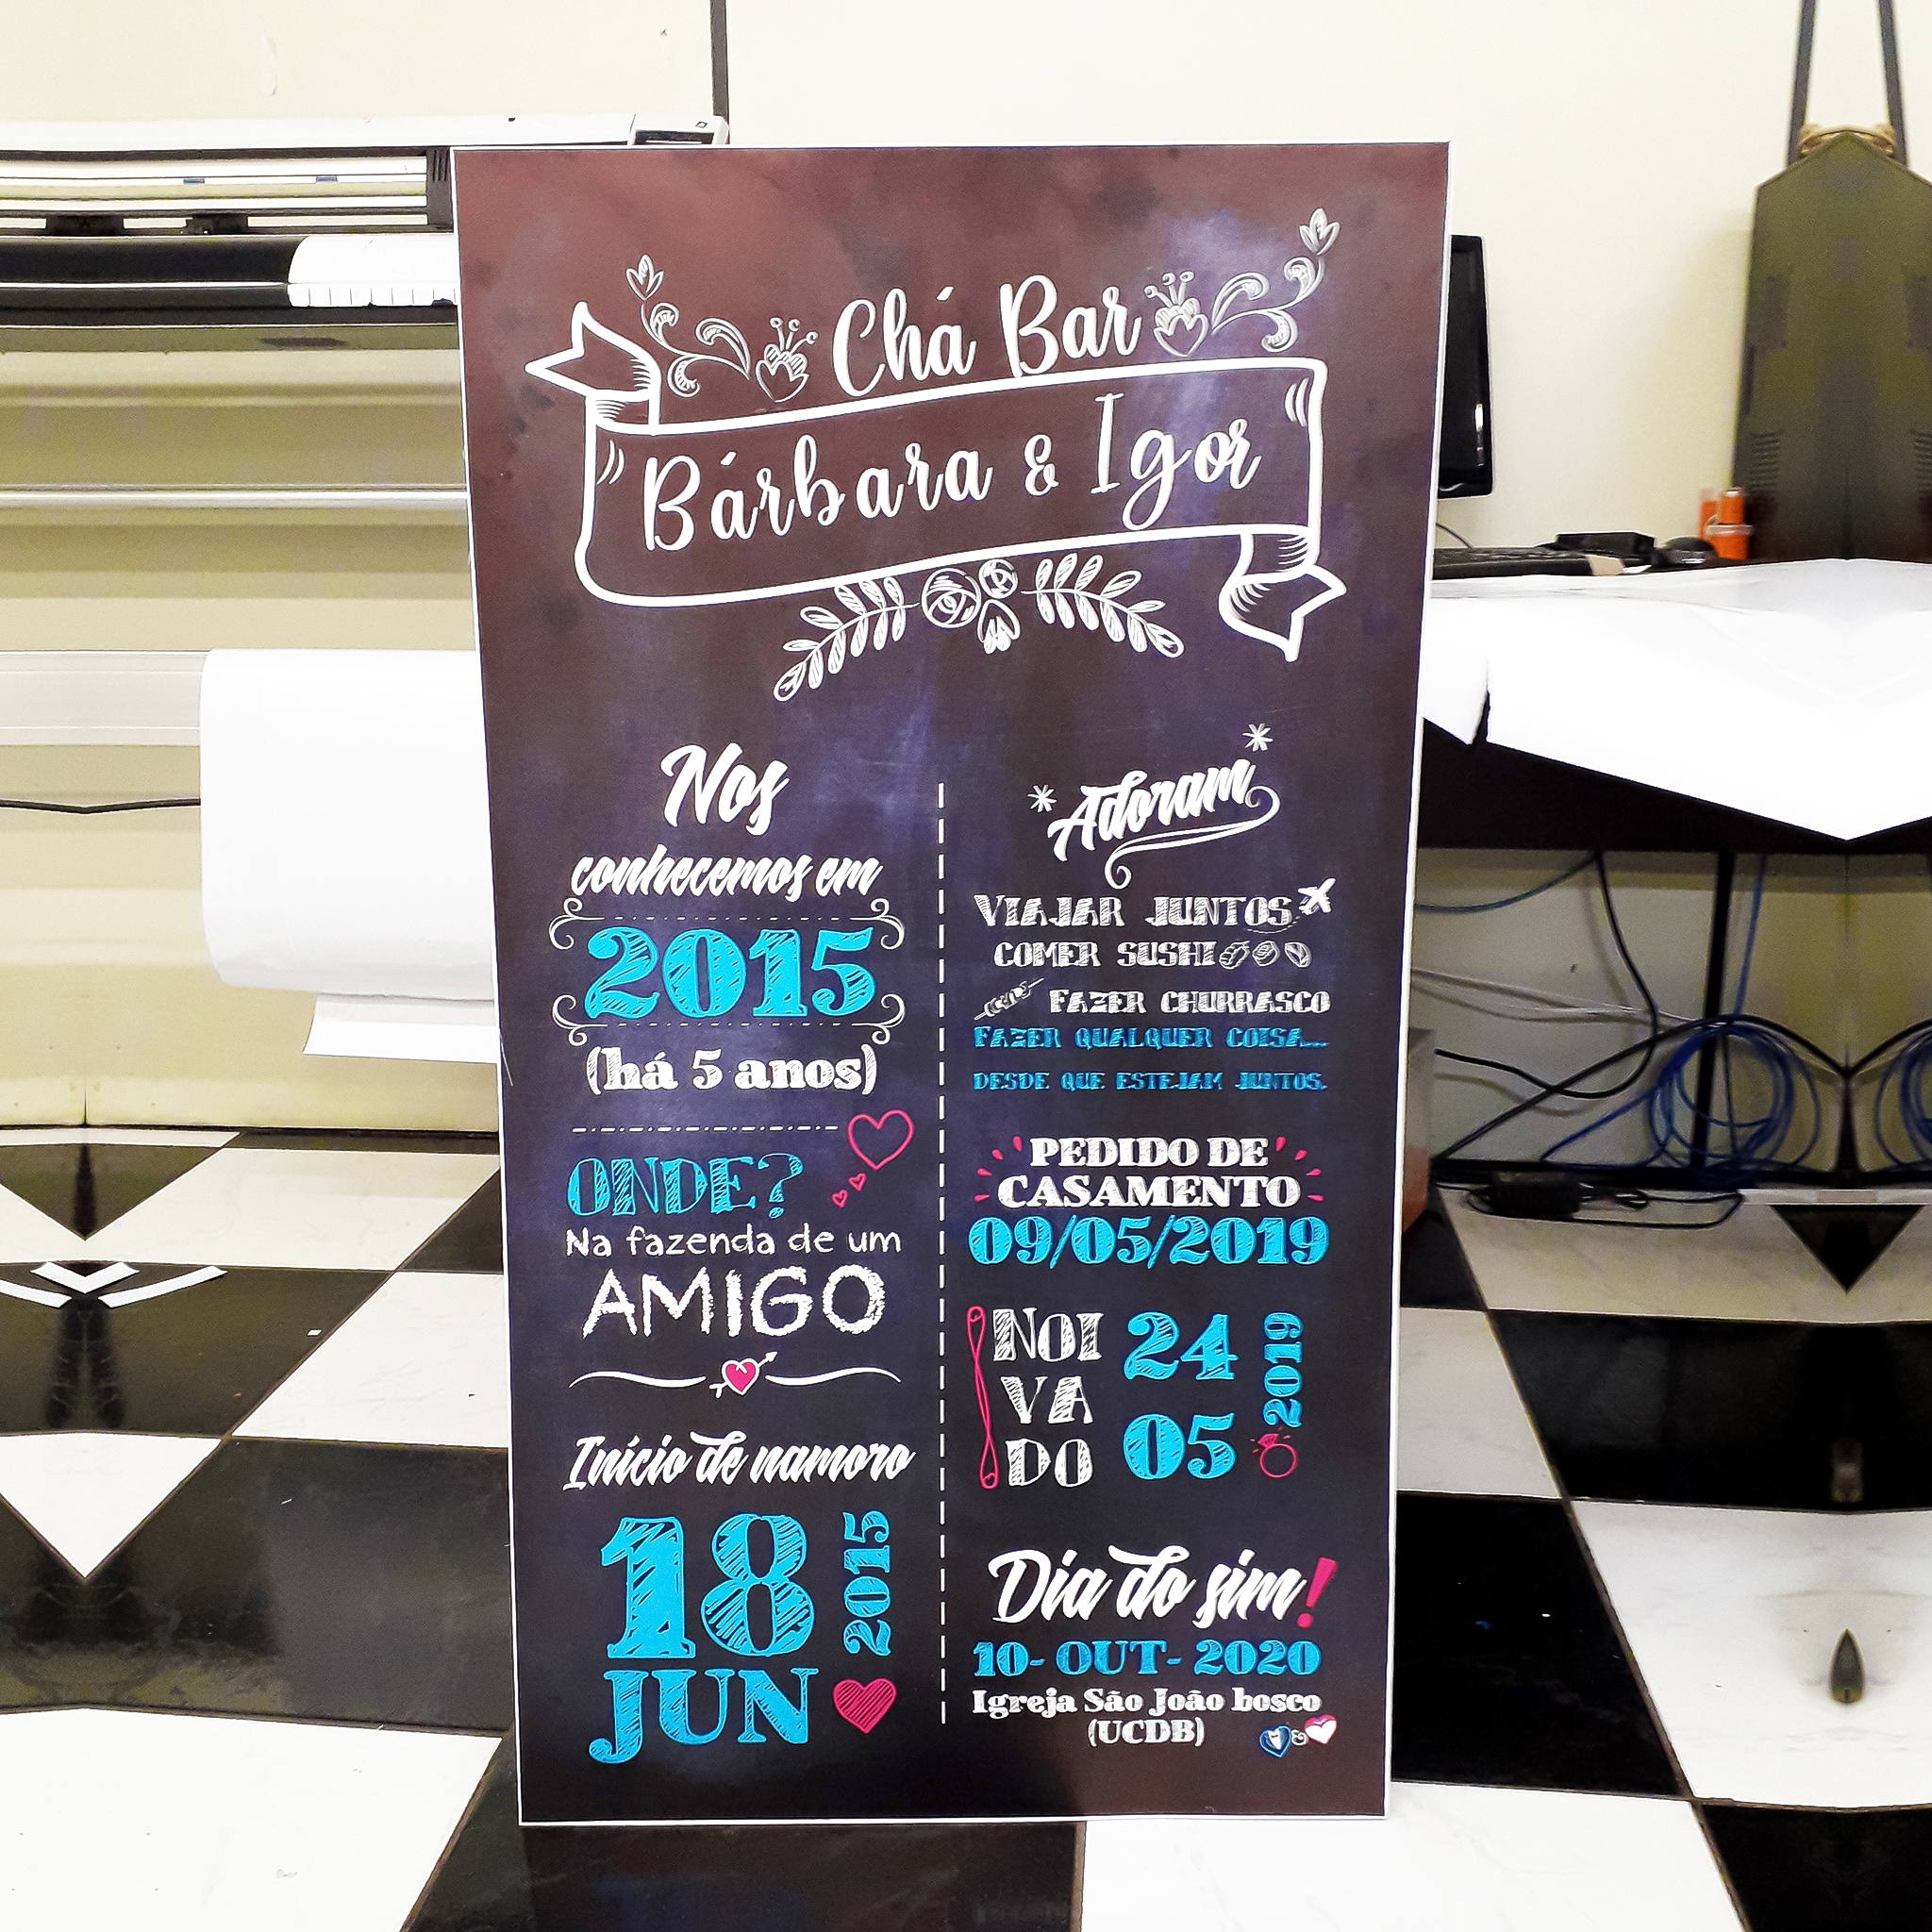 Chá Bar
Bárbara & Igor
Nos
conhecemos em
2015
(há 5 anos)
ONDE?
Na fazenda de um
AMIGO
Início de namoro
18
JUN
2015
Adoram
VIAJAR JUNTOS
COMER SUSHI
FAZER CHURRASCO
FAZER QUALQUER COISA...
DESDE QUE ESTEJAM JUNTOS.
PEDIDO DE
CASAMENTO
09/05/2019
NOI
VA
DO
24
05
2019
Dia do sim!
10- OUT- 2020
Igreja São João bosco
(UCDB)
&